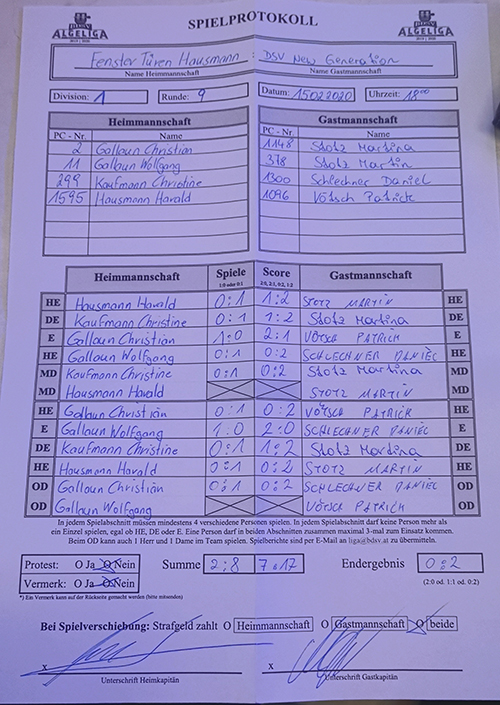 BDSV
ALGELIGA
2019 | 2020
SPIELPROTOKOLL
BDSV
ALGELIGA
2019 | 2020
Fenster Türen Hausmann : DSV New Generation
Name Heimmannschaft Name Gastmannschaft
Division: 1 Runde: 9 Datum: 15022020 Uhrzeit: 18 00
Heimmannschaft Gastmannschaft
PC - Nr. Name PC - Nr. Name
2 Galloun Christian 1148 Stotz Martina
11 Galloun Wolfgang 378 Stotz Martin
299 Kaufmann Christine 1300 Schlechner Daniel
1595 Hausmann Harald 1096 Vötsch Patrick
Heimmannschaft Spiele Score Gastmannschaft
1:0 oder 0:1 2:0, 2:1, 0:2, 1:2
HE Hausmann Harald 0:1 1:2 STOTZ MARTIN HE
DE Kaufmann Christine 0:1 1:2 Stotz Martina DE
E Galloun Christian 1:0 2:1 VÖTSCH PATRICK E
HE Galloun Wolfgang 0:1 0:2 SCHLECHNER DANIEL HE
MD Kaufmann Christine 0:1 0:2 Stotz Martina MD
MD Hausmann Harald STOTZ MARTIN MD
HE Galloun Christian 0:1 0:2 VÖTSCH PATRICK HE
E Galloun Wolfgang 1:0 2:0 SCHLECHNER DANIEL E
DE Kaufmann Christine 0:1 1:2 Stotz Martina DE
HE Hausmann Harald 0:1 0:2 STOTZ MARTIN HE
OD Galloun Christian 0:1 0:2 SCHLECHNER DANIEL OD
OD Galloun Wolfgang VÖTSCH PATRICK OD
In jedem Spielabschnitt müssen mindestens 4 verschiedene Personen spielen. In jedem Spielabschnitt darf keine Person mehr als
ein Einzel spielen, egal ob HE, DE oder E. Eine Person darf in beiden Abschnitten zusammen maximal 3-mal zum Einsatz kommen.
Beim OD kann auch 1 Herr und 1 Dame im Team spielen. Spielberichte sind per E-Mail an liga@bdsv.at zu übermitteln.
Protest: O Ja O Nein Summe 2:8 7:17 Endergebnis 0:2
Vermerk: O Ja O Nein (2:0 od. 1:1 od. 0:2)
*) Ein Vermerk kann auf der Rückseite gemacht werden (bitte mitsenden)
Bei Spielverschiebung: Strafgeld zahlt O Heimmannschaft O Gastmannschaft O beide
x x
Unterschrift Heimkapitän Unterschrift Gastkapitän